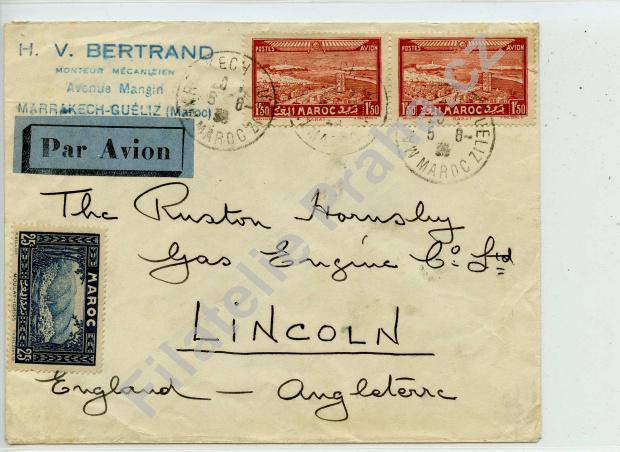 H. V. BERTRAND
MONTEUR MÉCANICIEN
Avenue Mangin
MARRAKECH-GUÉLIZ (Maroc)
Par Avion
POSTES AVION
MAROC
1F50 1F50
POSTES AVION
MAROC
1F50 1F50
MAROC
The Ruston Hornsby
Gas Engine Co. Ltd
LINCOLN
England — Angleterre
25 MAROC 25
Filatelie Praha.cz